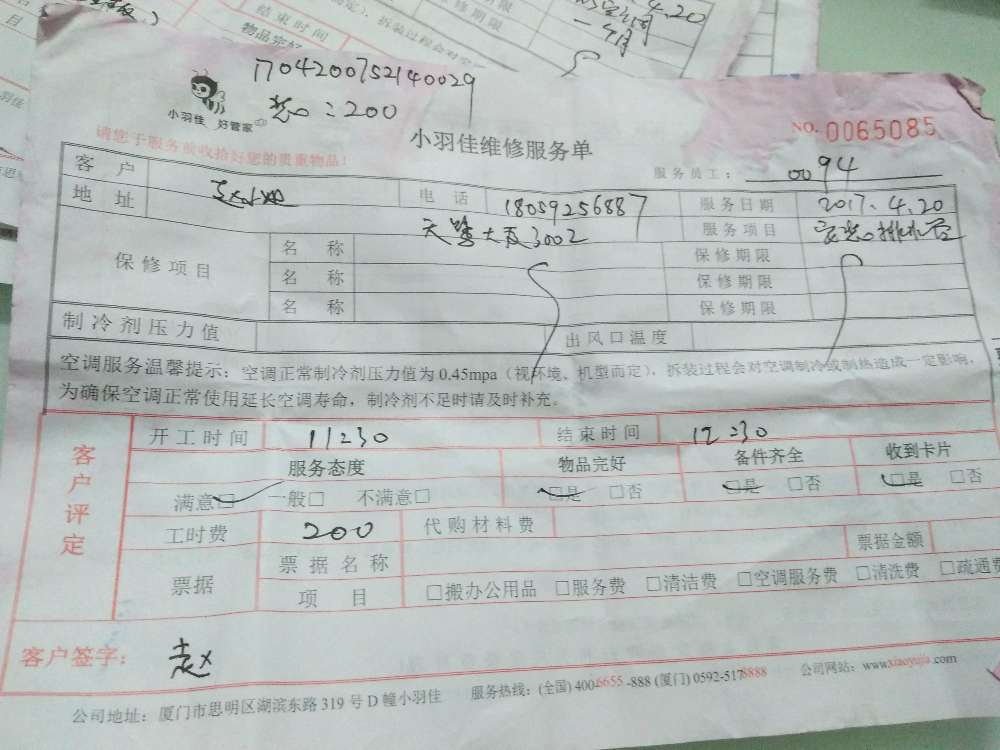 4.20
一个月
结束时间
保修期限
物品完好
1704200752140029
:200
小羽佳 好管家
小羽佳维修服务单
NO. 0065085
请您于服务前收拾好您的贵重物品!
服务员工: 0094
客户 赵小姐 电话 18059256887 服务日期 2017.4.20
地址 天鹭大厦3002 服务项目 排水管
保修项目 名称 保修期限
名称 保修期限
名称 保修期限
制冷剂压力值 出风口温度
空调服务温馨提示:空调正常制冷剂压力值为0.45mpa(视环境、机型而定),拆装过程会对空调制冷或制热造成一定影响,
为确保空调正常使用延长空调寿命,制冷剂不足时请及时补充。
客户评定
开工时间 11:30 结束时间 12:30
服务态度 物品完好 备件齐全 收到卡片
满意□ 一般□ 不满意□ □是 □否 □是 □否 □是 □否
工时费 200 代购材料费
票据 票据名称 票据金额
项目 □搬办公用品 □服务费 □清洁费 □空调服务费 □清洗费 □疏通费
客户签字: 赵
公司地址:厦门市思明区湖滨东路319号D幢小羽佳 服务热线:(全国)400-6655-888 (厦门)0592-5178888 公司网站:www.xiaoyujia.com